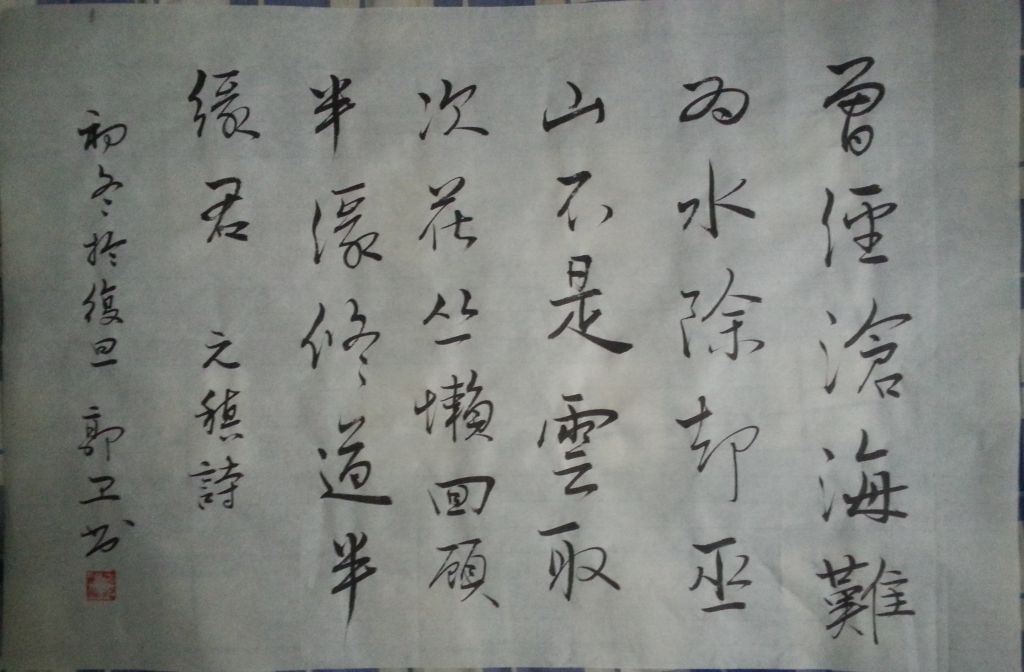 曾經滄海難
為水除却巫
山不是雲取
次花丛懶回顧
半緣修道半
緣君 元稹詩
初冬於復旦 郭卫书